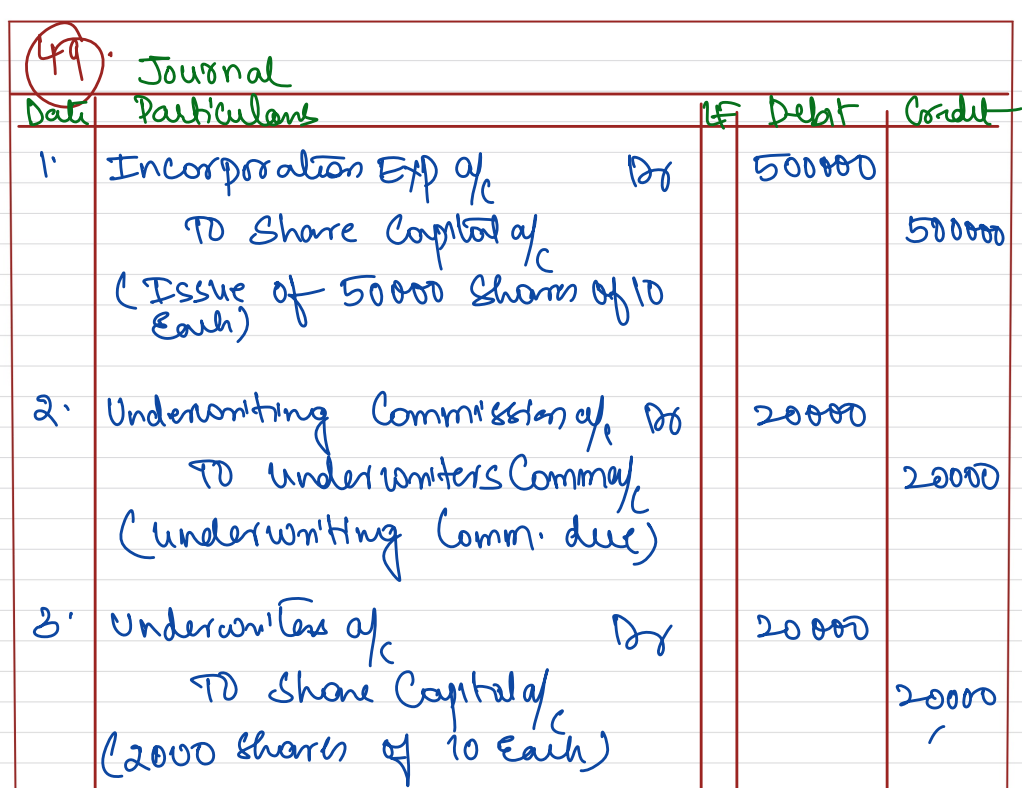 49.
Journal
Date Particulars LF Debit Credit
1. Incorporation Exp a/c Dr 500000
To Share Capital a/c 500000
(Issue of 50000 Shares of 10
Each)
2. Underwriting Commission a/c Dr 20000
To Underwriters Comm a/c 20000
(Underwriting Comm. due)
3. Underwriters a/c Dr 20000
To Share Capital a/c 20000
(2000 Shares of 10 Each)